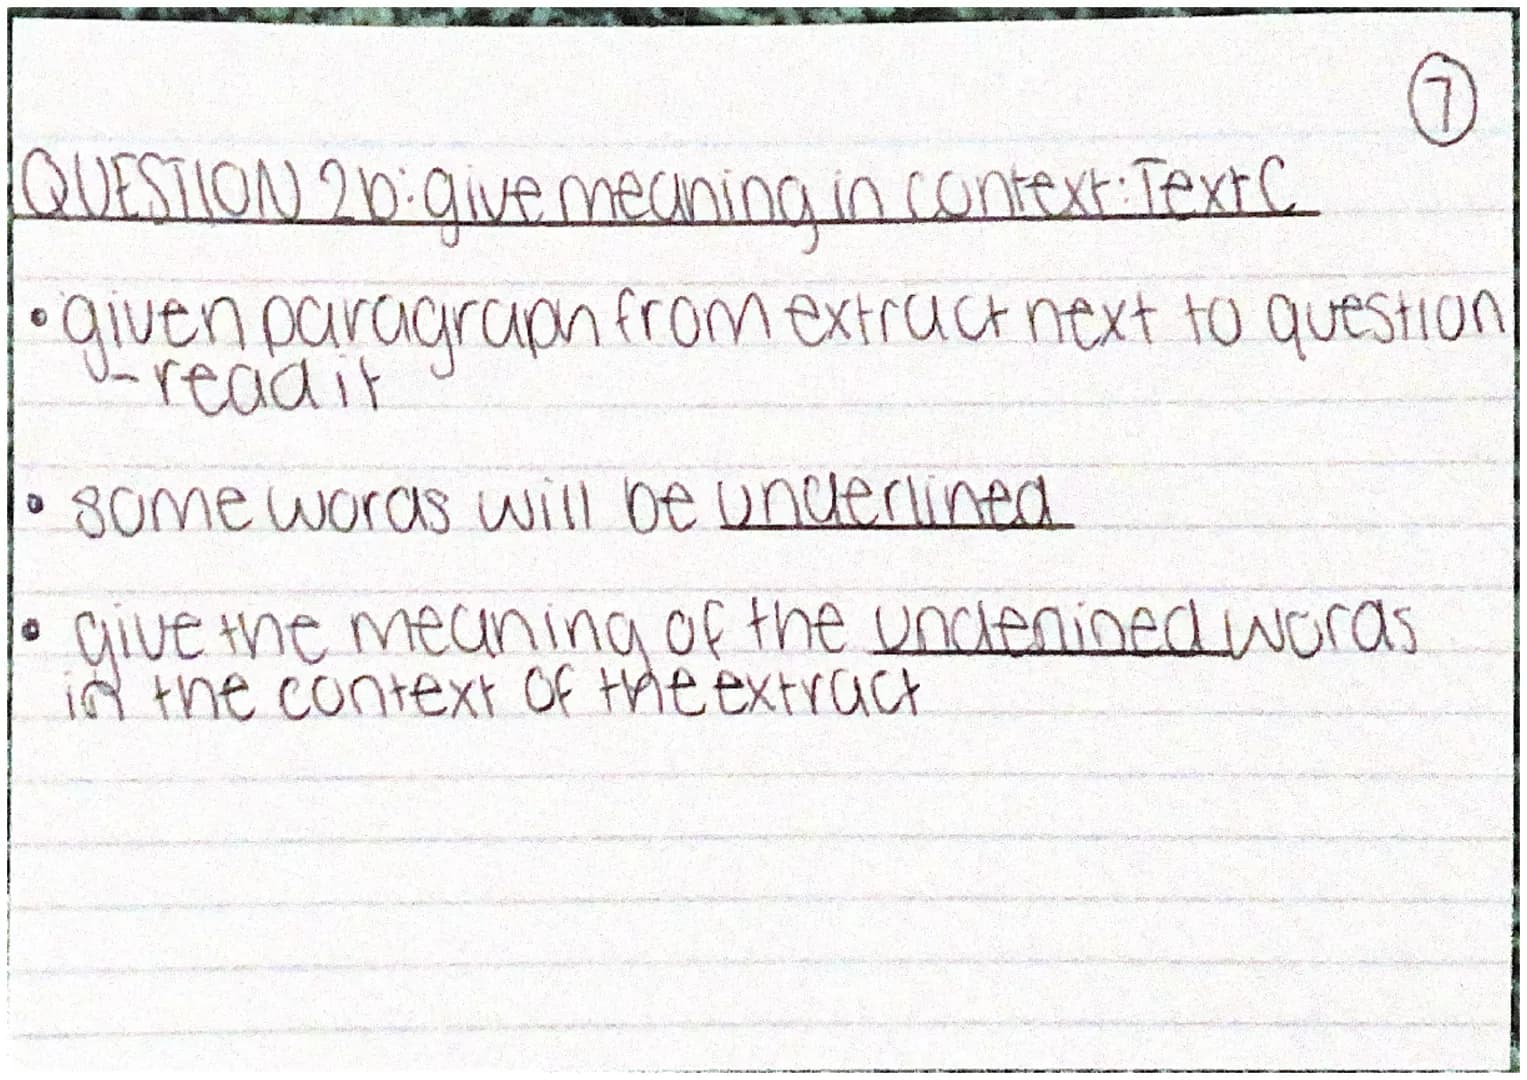 7
QUESTION 2b: give meaning in context: Text C
• given paragraph from extract next to question
- read it
• some words will be underlined
• give the meaning of the underlined words
in the context of the extract